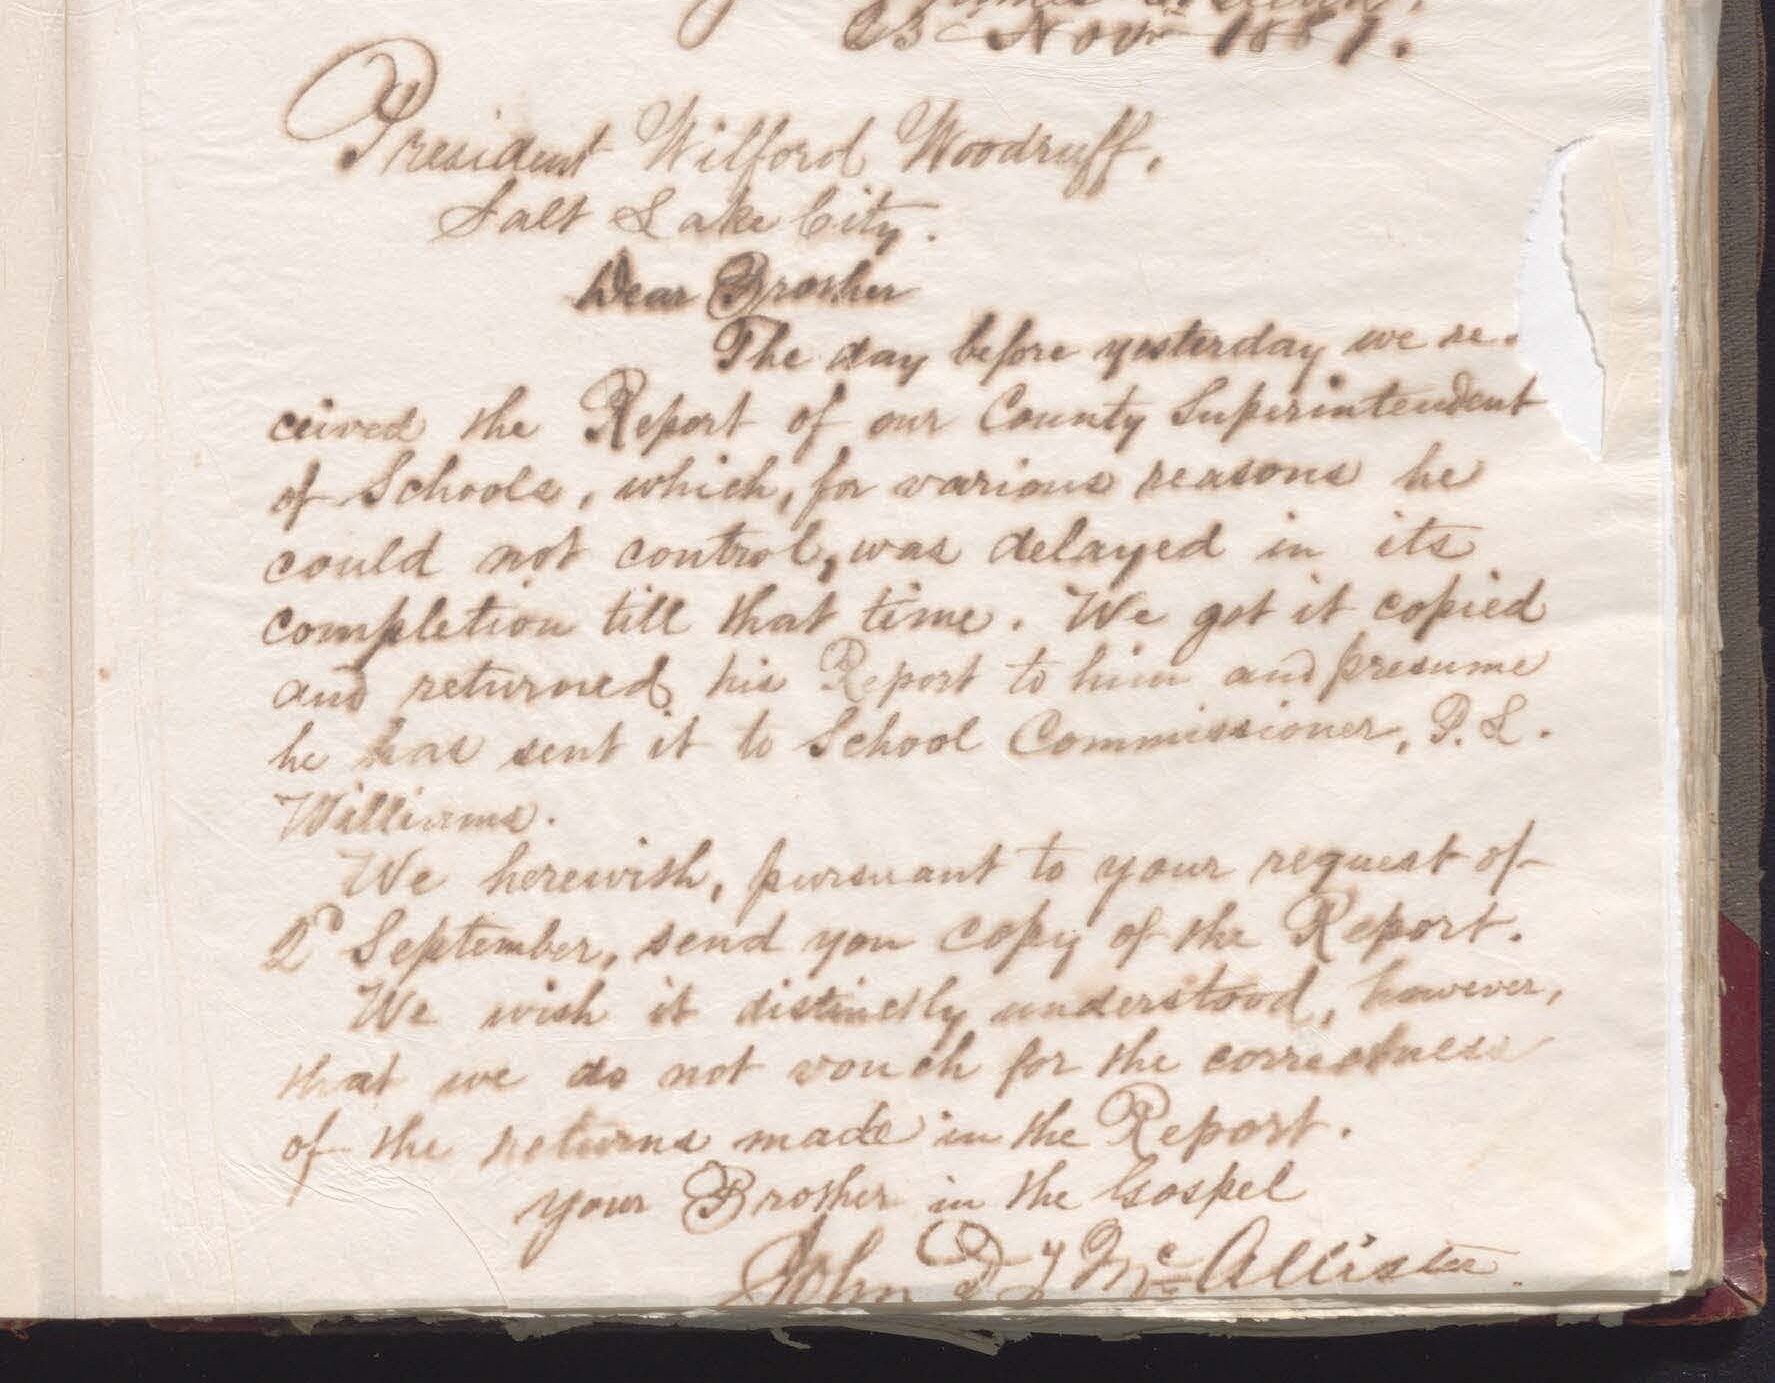 23 Novr 1887.
President Wilford Woodruff,
Salt Lake City.
Dear Brother
The day before yesterday we re-
ceived the Report of our County Superintendent
of Schools, which, for various reasons he
could not control, was delayed in its
completion till that time. We got it copied
and returned his Report to him and presume
he has sent it to School Commissioner, P. L.
Williams.
We herewith, pursuant to your request of
2d September, send you copy of the Report.
We wish it distinctly understood, however,
that we do not vouch for the correctness
of the returns made in the Report.
Your Brother in the Gospel
John D T McAllister